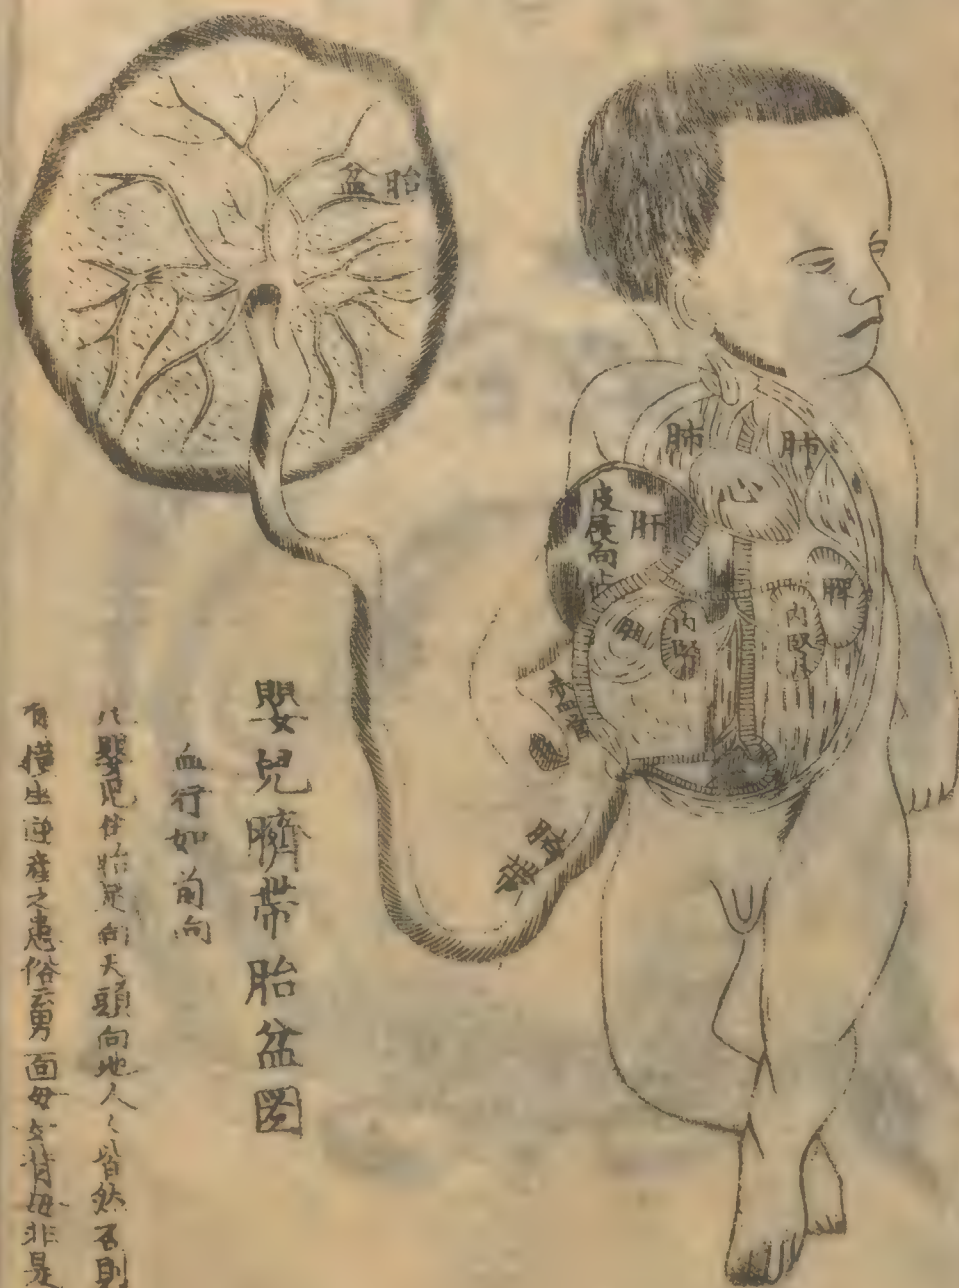 胎盆
肺
肺
心
肝
皮硬向上
脾
胆
內腎
內腎
臍帶
嬰兒臍帶胎盆圖
血行如前向
凡嬰兒住胎足向天頭向地人人皆然否則
有橫生逆產之患俗云男面母女背母非是